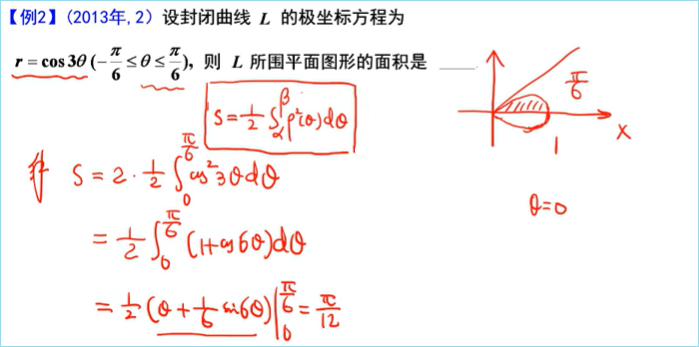 【例2】(2013年,2) 设封闭曲线 L 的极坐标方程为
r = cos 3θ (−π/6 ≤ θ ≤ π/6), 则 L 所围平面图形的面积是 ____
S = 1/2 ∫_α^β ρ²(θ)dθ
π/6
x
1
θ=0
解 S = 2 · 1/2 ∫_0^{π/6} cos²3θdθ
= 1/2 ∫_0^{π/6} (1+cos6θ)dθ
= 1/2 (θ + 1/6 sin6θ)|_0^{π/6} = π/12